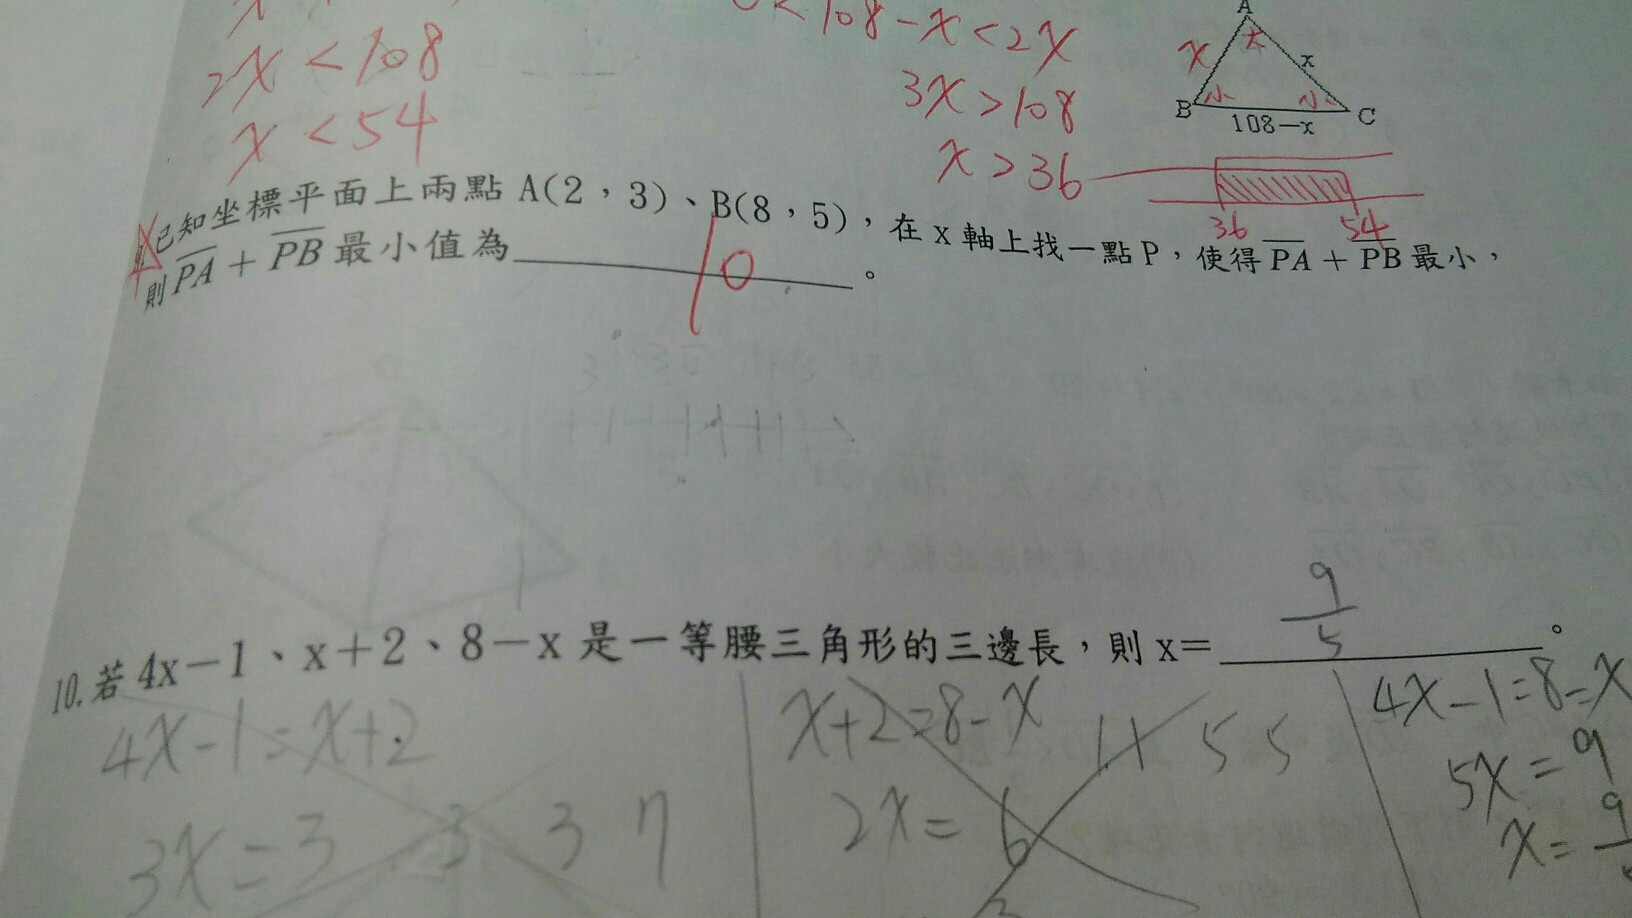 2x<108
x<54
0<108-x<2x
3x>108
x>36
A
大
x
x
B
小
小
C
108-x
36
54
已知坐標平面上兩點 A(2,3)、B(8,5),在 x 軸上找一點 P,使得 PA + PB 最小,
則 PA + PB 最小值為 10 。
10.若 4x-1、x+2、8-x 是一等腰三角形的三邊長,則 x= 9/5 。
4x-1=x+2
3x=3
3 3 7
x+2=8-x
2x=6
11 5 5
4x-1=8-x
5x=9
x=9